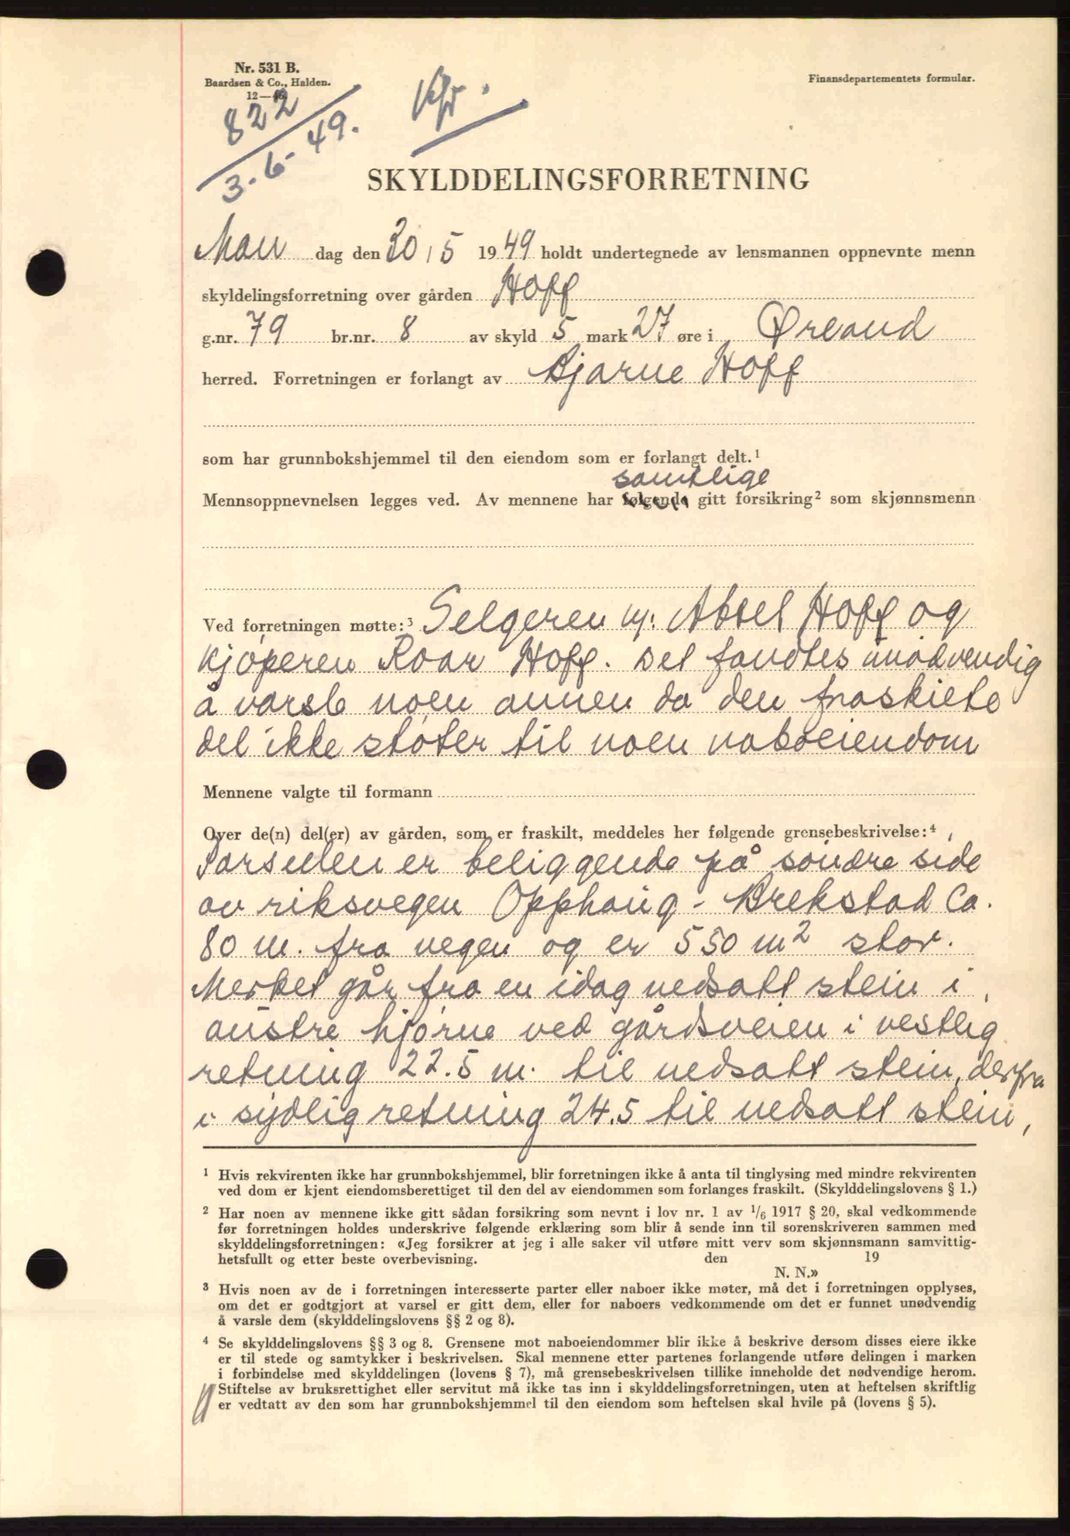 Nr. 531 B.
Baardsen & Co., Halden.
12—46
Finansdepartementets formular.
822
3-6-49.
SKYLDDELINGSFORRETNING
Man dag den 30/5 1949 holdt undertegnede av lensmannen oppnevnte menn
skyldelingsforretning over gården Hoff
g.nr. 79 br.nr. 8 av skyld 5 mark 27 øre i Ørland
herred. Forretningen er forlangt av Bjarne Hoff
som har grunnbokshjemmel til den eiendom som er forlangt delt.¹
samtlige
Mennsoppnevnelsen legges ved. Av mennene har følgende gitt forsikring² som skjønnsmenn
Ved forretningen møtte:³ Selgeren v/: Aksel Hoff og
kjøperen Roar Hoff. Det fandtes unødvendig
å varsle noen annen da den fraskilte
del ikke støter til noen naboeiendom
Mennene valgte til formann
Over de(n) del(er) av gården, som er fraskilt, meddeles her følgende grensebeskrivelse:⁴
Parsellen er beliggende på søndre side
av riksvegen Opphaug - Brekstad Ca.
80 m. fra vegen og er 550 m² stor.
Merket går fra en idag nedsatt stein i
austre hjørne ved gårdsveien i vestlig
retning 22.5 m. til nedsatt stein, derfra
i sydlig retning 24.5 til nedsatt stein,
¹ Hvis rekvirenten ikke har grunnbokshjemmel, blir forretningen ikke å anta til tinglysing med mindre rekvirenten
ved dom er kjent eiendomsberettiget til den del av eiendommen som forlanges fraskilt. (Skylddelingslovens § 1.)
² Har noen av mennene ikke gitt sådan forsikring som nevnt i lov nr. 1 av ¹/₆ 1917 § 20, skal vedkommende
før forretningen holdes underskrive følgende erklæring som blir å sende inn til sorenskriveren sammen med
skylddelingsforretningen: «Jeg forsikrer at jeg i alle saker vil utføre mitt verv som skjønnsmann samvittig-
hetsfullt og etter beste overbevisning. den 19
N. N.»
³ Hvis noen av de i forretningen interesserte parter eller naboer ikke møter, må det i forretningen opplyses,
om det er godtgjort at varsel er gitt dem, eller for naboers vedkommende om det er funnet unødvendig
å varsle dem (skylddelingslovens §§ 2 og 8).
⁴ Se skylddelingslovens §§ 3 og 8. Grensene mot naboeiendommer blir ikke å beskrive dersom disses eiere ikke
er til stede og samtykker i beskrivelsen. Skal mennene etter partenes forlangende utføre delingen i marken
i forbindelse med skylddelingen (lovens § 7), må grensebeskrivelsen tillike inneholde det nødvendige herom.
Stiftelse av bruksrettighet eller servitut må ikke tas inn i skylddelingsforretningen, uten at heftelsen skriftlig
er vedtatt av den som har grunnbokshjemmel til den eiendom som heftelsen skal hvile på (lovens § 5).